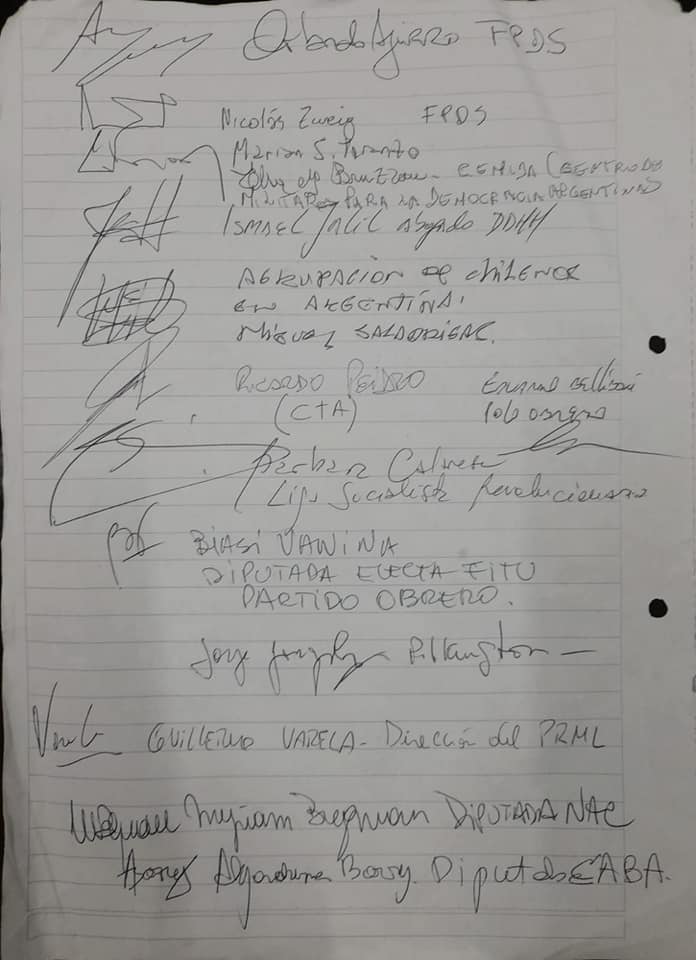 Orlando Agüero FPDS
Nicolás Zweig FPDS
Marian S.
CEMIDA (CENTRO DE
MILITARES PARA LA DEMOCRACIA ARGENTINA)
ISMAEL Jalil abogado DDHH
AGRUPACION de chilenos
en ARGENTINA.
Miguel
RICARDO PEIDRO
(CTA)
Liga Socialista Revolucionaria
BIASI VANINA
DIPUTADA ELECTA FITU
PARTIDO OBRERO.
Jorge Pilkington
GUILLERMO VARELA - Dirección del PRML
Myriam Bregman DIPUTADA NAC
Alejandrina Barry. Diputada CABA.